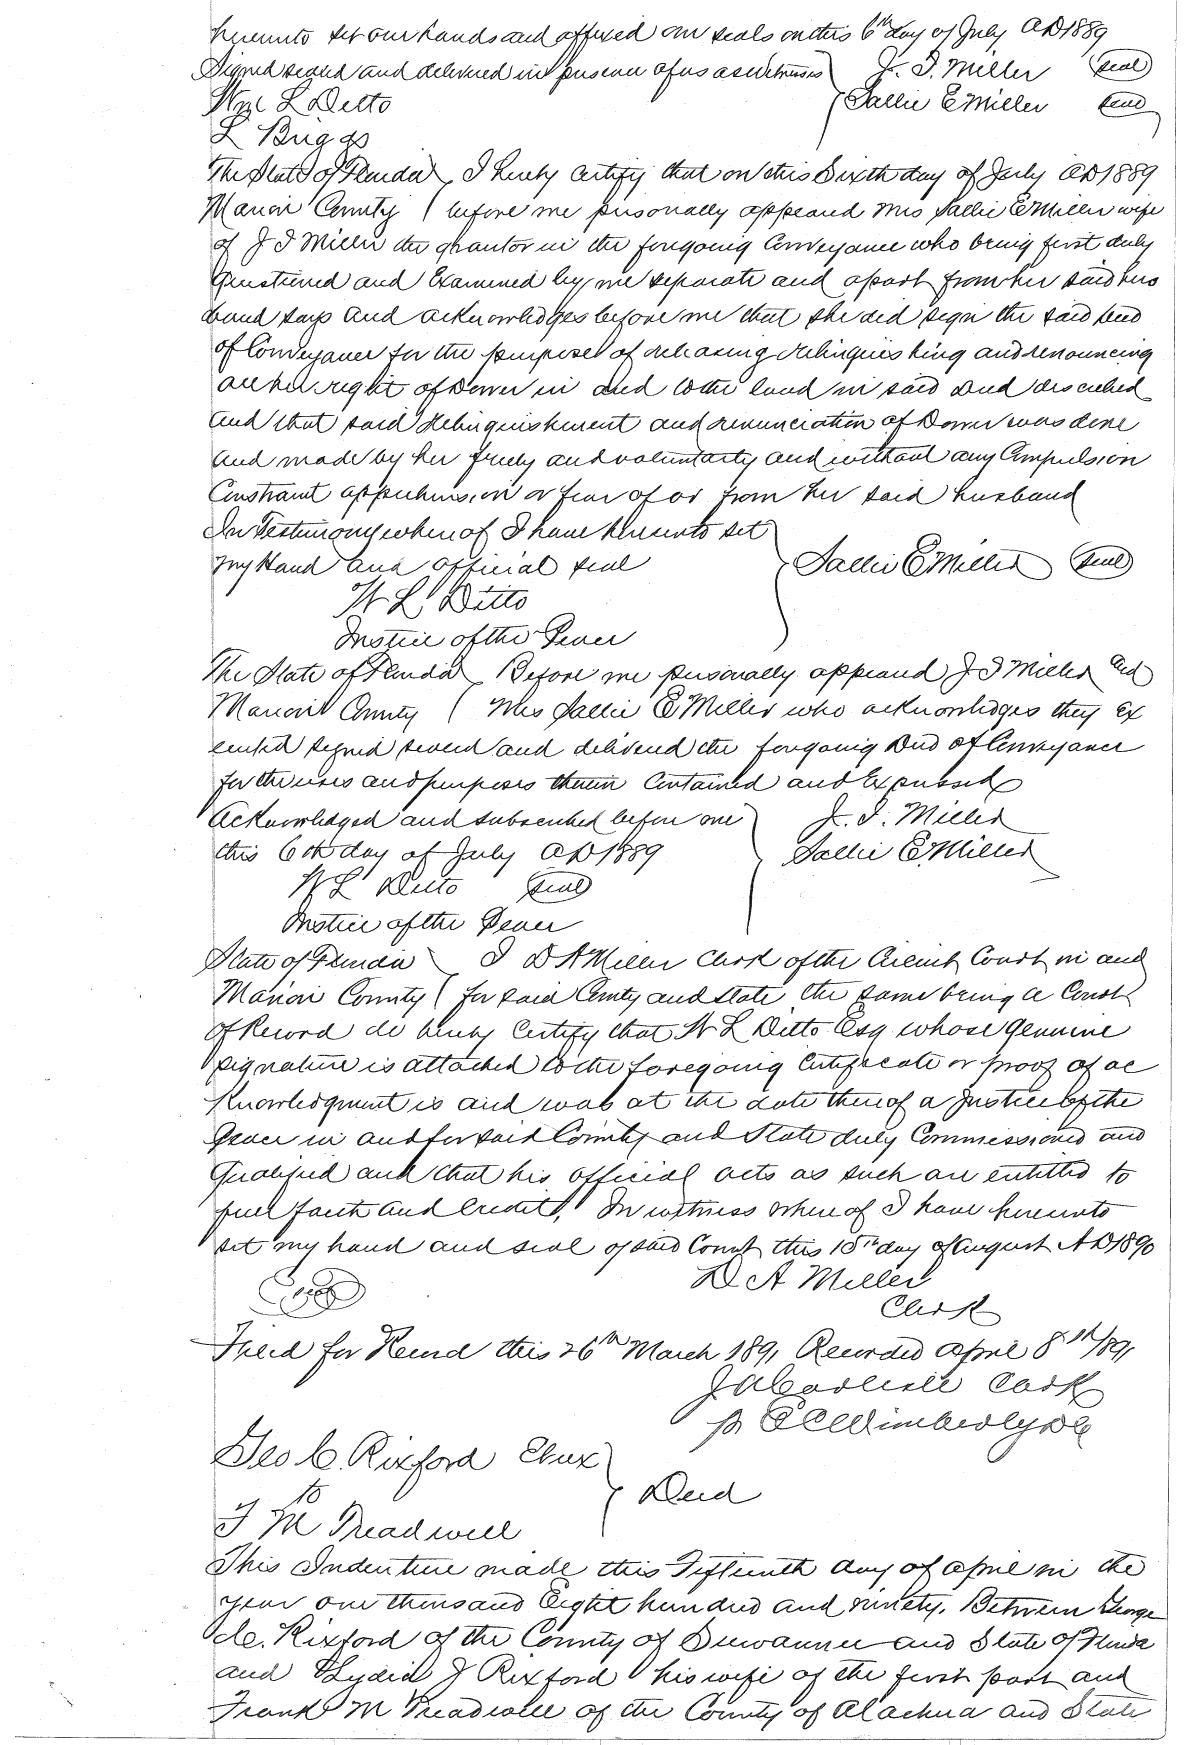 hereunto set our hands and affixed our seals on this 6th day of July AD 1889
Signed sealed and delivered in presence of us as witnesses J. I. Miller (seal)
Wm L Ditto Sallie E Miller seal
L Briggs
The State of Florida I hereby certify that on this Sixth day of July AD 1889
Marion County before me personally appeared Mrs Sallie E Miller wife
of J I Miller the grantor in the foregoing Conveyance who being first duly
questioned and Examined by me separate and apart from her said hus
band says and acknowledges before me that she did sign the said deed
of Conveyance for the purpose of releasing relinquishing and renouncing
all her right of Dower in and to the land in said Deed described
and that said relinquishment and renunciation of Dower was done
and made by her freely and voluntarily and without any Compulsion
Constraint apprehension or fear of or from her said husband
In Testimony whereof I have hereunto set
my Hand and official seal Sallie E Miller (seal)
W L Ditto
Justice of the Peace
The State of Florida Before me personally appeared J I Miller and
Marion County Mrs Sallie E Miller who acknowledges they Ex
ecuted signed sealed and delivered the foregoing Deed of Conveyance
for the uses and purposes therein Contained and Expressed
Acknowledged and subscribed before me J. I. Miller
this 6th day of July AD 1889 Sallie E. Miller
W L Ditto (seal)
Justice of the Peace
State of Florida I D A Miller Clerk of the Circuit Court in and
Marion County for said County and State the same being a Court
of Record do hereby Certify that W L Ditto Esq whose genuine
signature is attached to the foregoing Certificate or proof of ac
knowledgment is and was at the date thereof a Justice of the
Peace in and for said County and State duly Commissioned and
qualified and that his official acts as such are entitled to
full faith and credit. In witness whereof I have hereunto
set my hand and seal of said Court this 15th day of August AD 1890
(seal) D A Miller
Clerk
Filed for Record this 26th March 1891 Recorded April 8th/891
J A Carlisle Clerk
pr E C Wimberly DC
Geo C. Rixford Et ux
to Deed
F M Treadwell
This Indenture made this Fifteenth day of April in the
year one thousand Eight hundred and ninety. Between George
C. Rixford of the County of Suwannee and State of Florida
and Lydia J Rixford his wife of the first part and
Frank M Treadwell of the County of Alachua and State